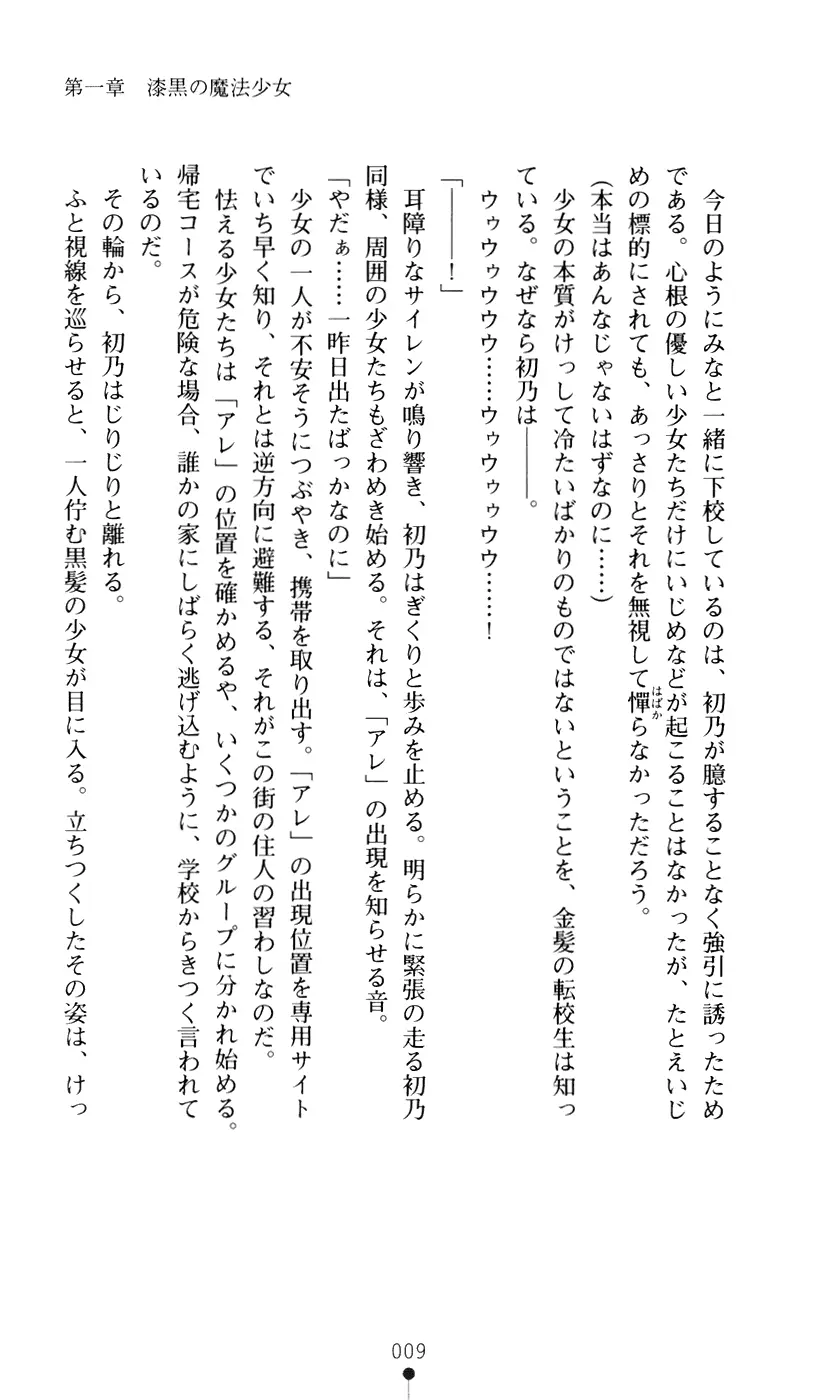 第一章　漆黒の魔法少女
　今日のようにみなと一緒に下校しているのは、初乃が臆することなく強引に誘ったため
である。心根の優しい少女たちだけにいじめなどが起こることはなかったが、たとえいじ
めの標的にされても、あっさりとそれを無視して憚らなかっただろう。
はばか
（本当はあんなじゃないはずなのに……）
　少女の本質がけっして冷たいばかりのものではないということを、金髪の転校生は知っ
ている。なぜなら初乃は――。
　ウゥウゥウウウ……ウゥウゥゥウウ……！
「――！」
　耳障りなサイレンが鳴り響き、初乃はぎくりと歩みを止める。明らかに緊張の走る初乃
同様、周囲の少女たちもざわめき始める。それは、「アレ」の出現を知らせる音。
「やだぁ……一昨日出たばっかなのに」
　少女の一人が不安そうにつぶやき、携帯を取り出す。「アレ」の出現位置を専用サイト
でいち早く知り、それとは逆方向に避難する、それがこの街の住人の習わしなのだ。
　怯える少女たちは「アレ」の位置を確かめるや、いくつかのグループに分かれ始める。
帰宅コースが危険な場合、誰かの家にしばらく逃げ込むように、学校からきつく言われて
いるのだ。
　その輪から、初乃はじりじりと離れる。
　ふと視線を巡らせると、一人佇む黒髪の少女が目に入る。立ちつくしたその姿は、けっ
009